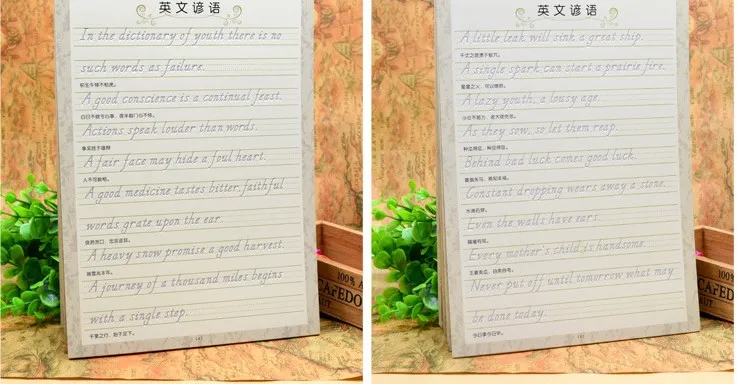 英文谚语
In the dictionary of youth there is no
such words as failure.
初生牛犊不怕虎。
A good conscience is a continual feast.
白日不做亏心事，夜半敲门心不惊。
Actions speak louder than words.
事实胜于雄辩
A fair face may hide a foul heart.
人不可貌相。
A good medicine tastes bitter, faithful
words grate upon the ear.
良药苦口，忠言逆耳。
A heavy snow promise a good harvest.
瑞雪兆丰年。
A journey of a thousand miles begins
with a single step.
千里之行，始于足下。
英文谚语
A little leak will sink a great ship.
千丈之堤溃于蚁穴。
A single spark can start a prairie fire.
星星之火，可以燎原。
A lazy youth, a lousy age.
少壮不努力，老大徒伤悲。
As they sow, so let them reap.
种瓜得瓜，种豆得豆。
Behind bad luck comes good luck.
塞翁失马，焉知非福。
Constant dropping wears away a stone.
水滴石穿。
Even the walls have ears.
隔墙有耳。
Every mother's child is handsome.
王婆卖瓜，自卖自夸。
Never put off until tomorrow what may
be done today.
今日事今日毕。
100% A
CAFEDO